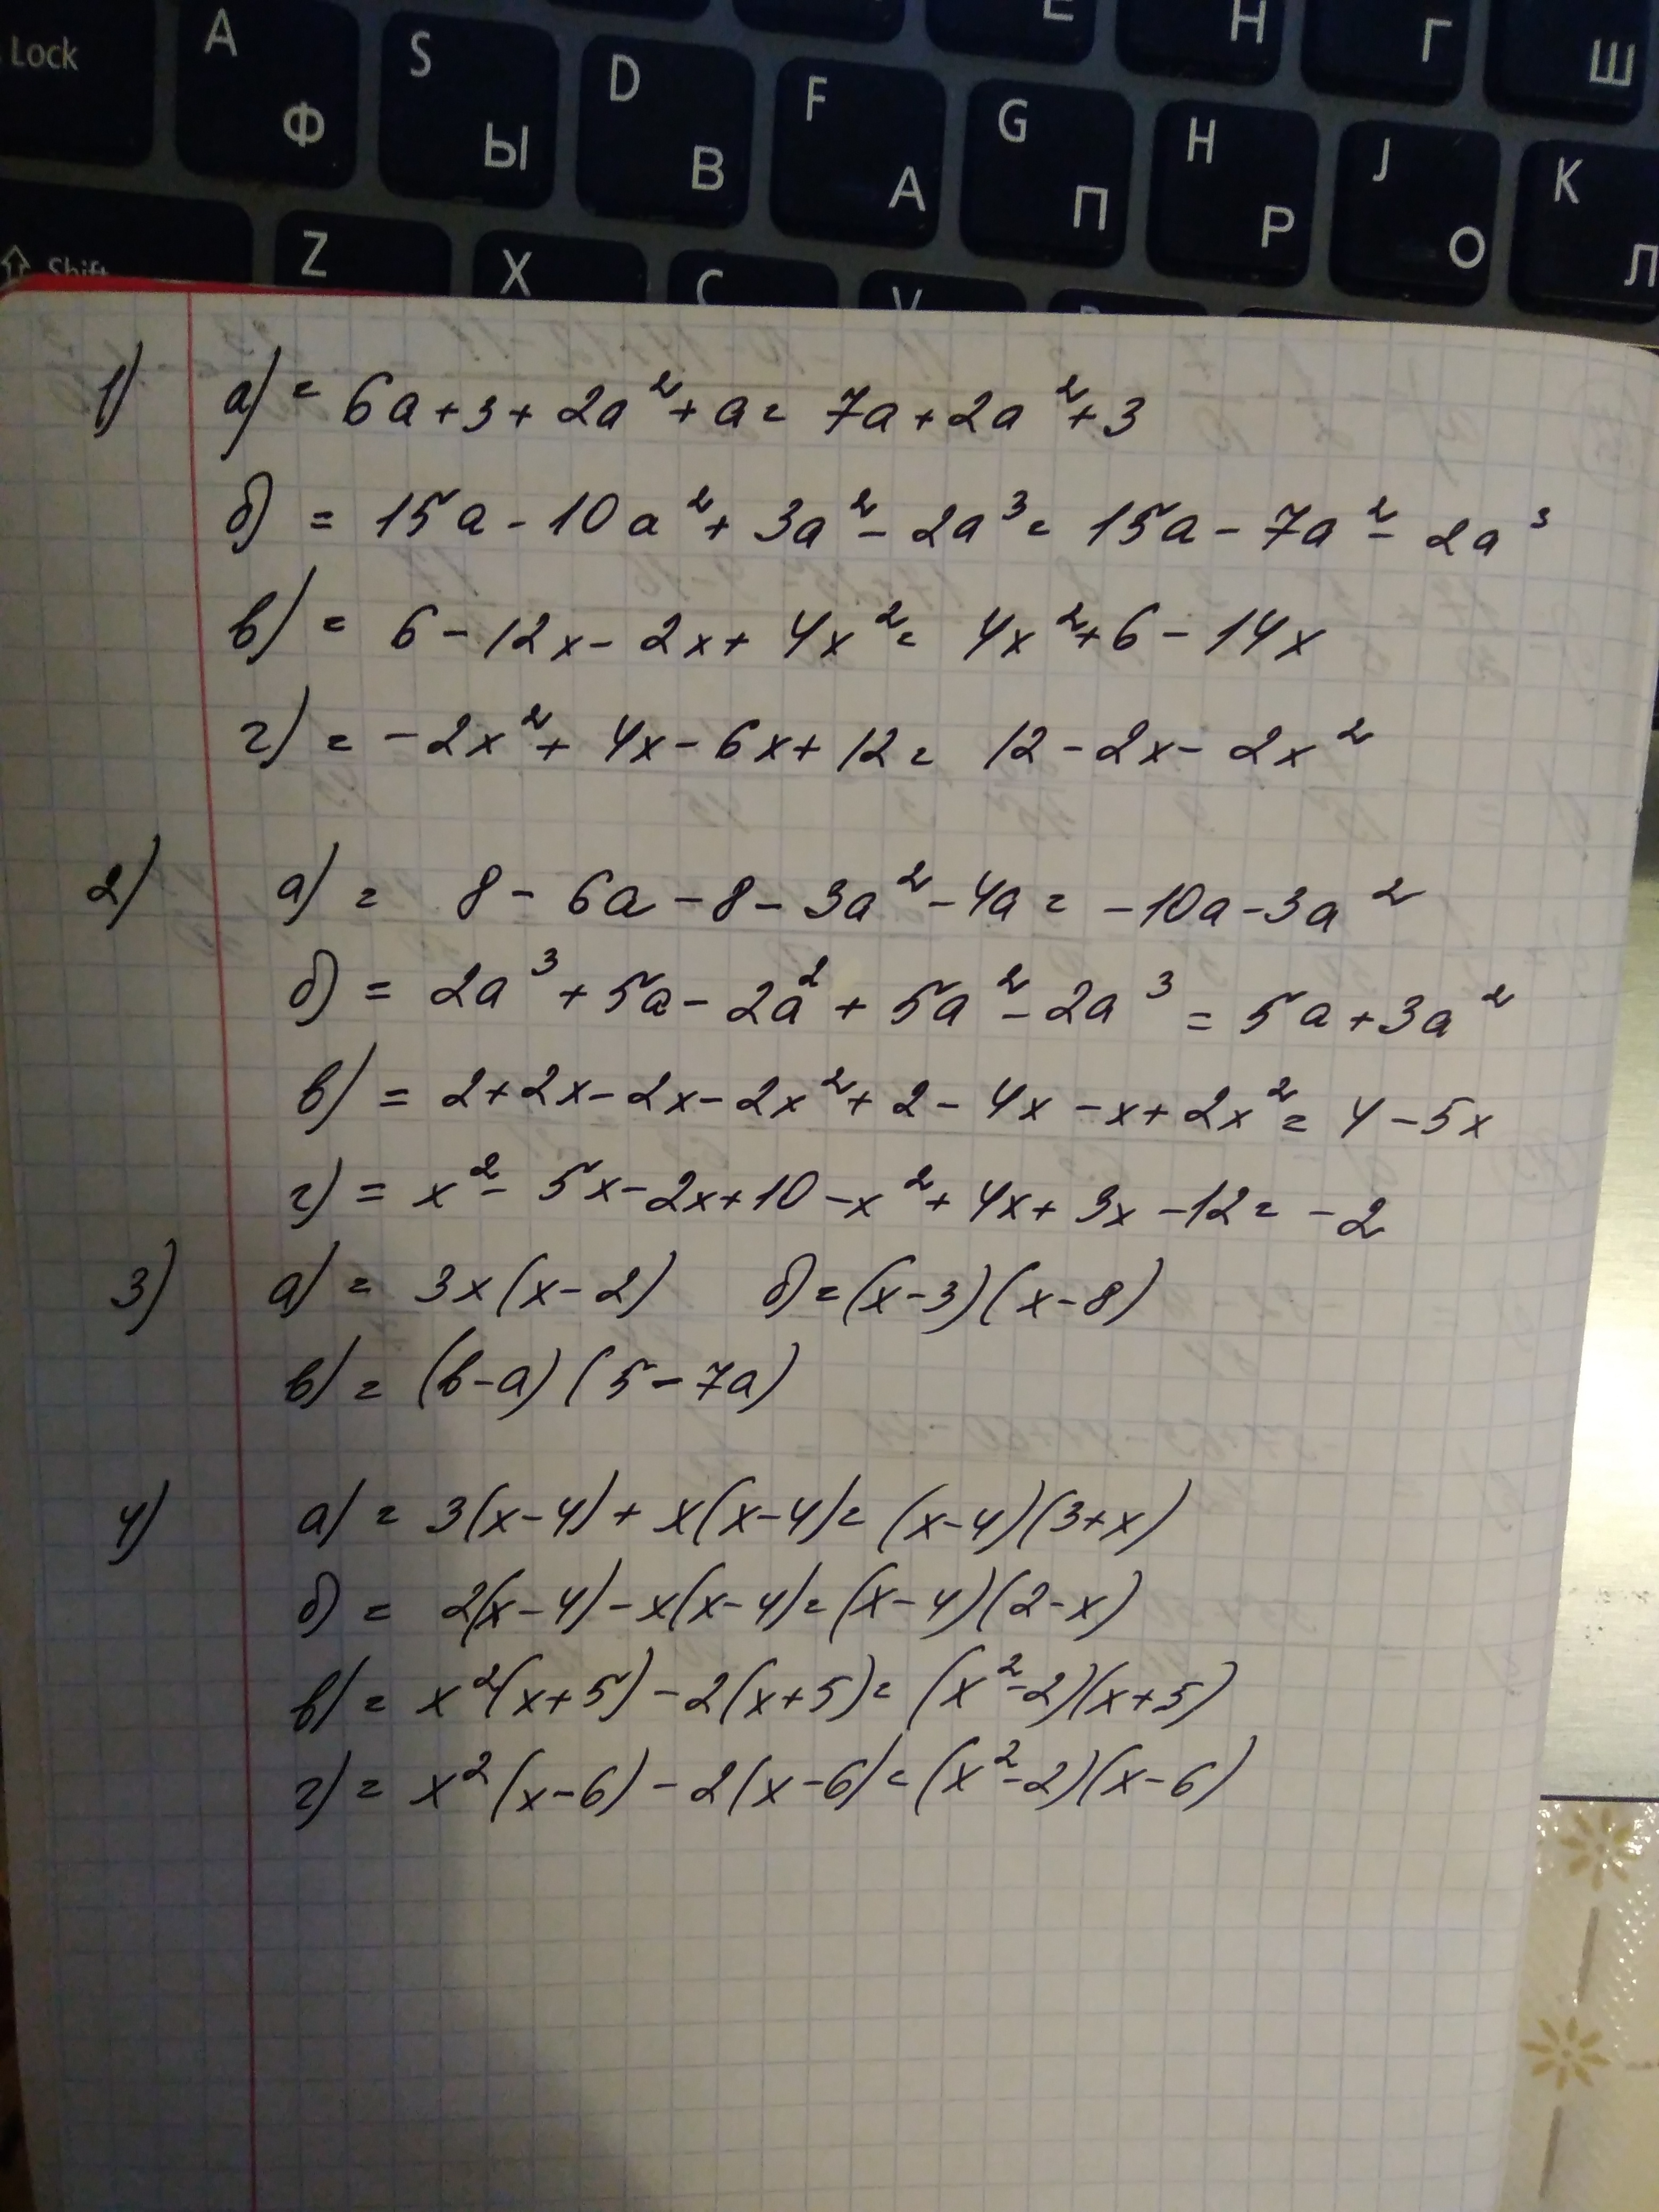 Lock A Ф S Ы D В F А G П H Р J О K Л
Е Н Г Ш
Shift Z X C V
1) а) = 6a+3+2a²+a= 7a+2a²+3
б) = 15a-10a²+3a²-2a³= 15a-7a²-2a³
в) = 6-12x-2x+4x²= 4x²+6-14x
г) = -2x²+4x-6x+12= 12-2x-2x²
2) а) = 8-6a-8-3a²-4a= -10a-3a²
б) = 2a³+5a-2a²+5a²-2a³=5a+3a²
в) = 2+2x-2x-2x²+2-4x-x+2x²= 4-5x
г) = x²-5x-2x+10-x²+4x+3x-12= -2
3) а) = 3x(x-2) б)=(x-3)(x-8)
в) = (b-a)(5-7a)
4) а) = 3(x-4)+x(x-4)= (x-4)(3+x)
б) = 2(x-4)-x(x-4)=(x-4)(2-x)
в) = x²(x+5)-2(x+5)= (x²-2)(x+5)
г) = x²(x-6)-2(x-6)=(x²-2)(x-6)